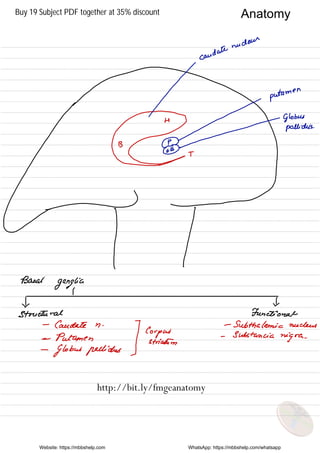 Buy 19 Subject PDF together at 35% discount
Anatomy
caudate nucleus
putamen
Globus
pallidus
H
B
P
GB
T
Basal ganglia
Structural
Functional
- Caudate n.
- Putamen
- Globus pallidus
Corpus
striatum
- Subthalamic nucleus
- Substancia nigra.
http://bit.ly/fmgeanatomy
Website: https://mbbshelp.com
WhatsApp: https://mbbshelp.com/whatsapp